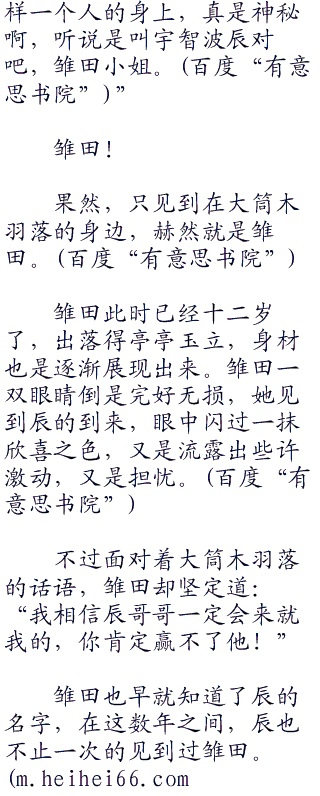 样一个人的身上，真是神秘
啊，听说是叫宇智波辰对
吧，雏田小姐。(百度“有意
思书院”)”
雏田！
果然，只见到在大筒木
羽落的身边，赫然就是雏
田。(百度“有意思书院”)
雏田此时已经十二岁
了，出落得亭亭玉立，身材
也是逐渐展现出来。雏田一
双眼睛倒是完好无损，她见
到辰的到来，眼中闪过一抹
欣喜之色，又是流露出些许
激动，又是担忧。(百度“有
意思书院”)
不过面对着大筒木羽落
的话语，雏田却坚定道：
“我相信辰哥哥一定会来就
我的，你肯定赢不了他！”
雏田也早就知道了辰的
名字，在这数年之间，辰也
不止一次的见到过雏田。
(m.heihei66.com